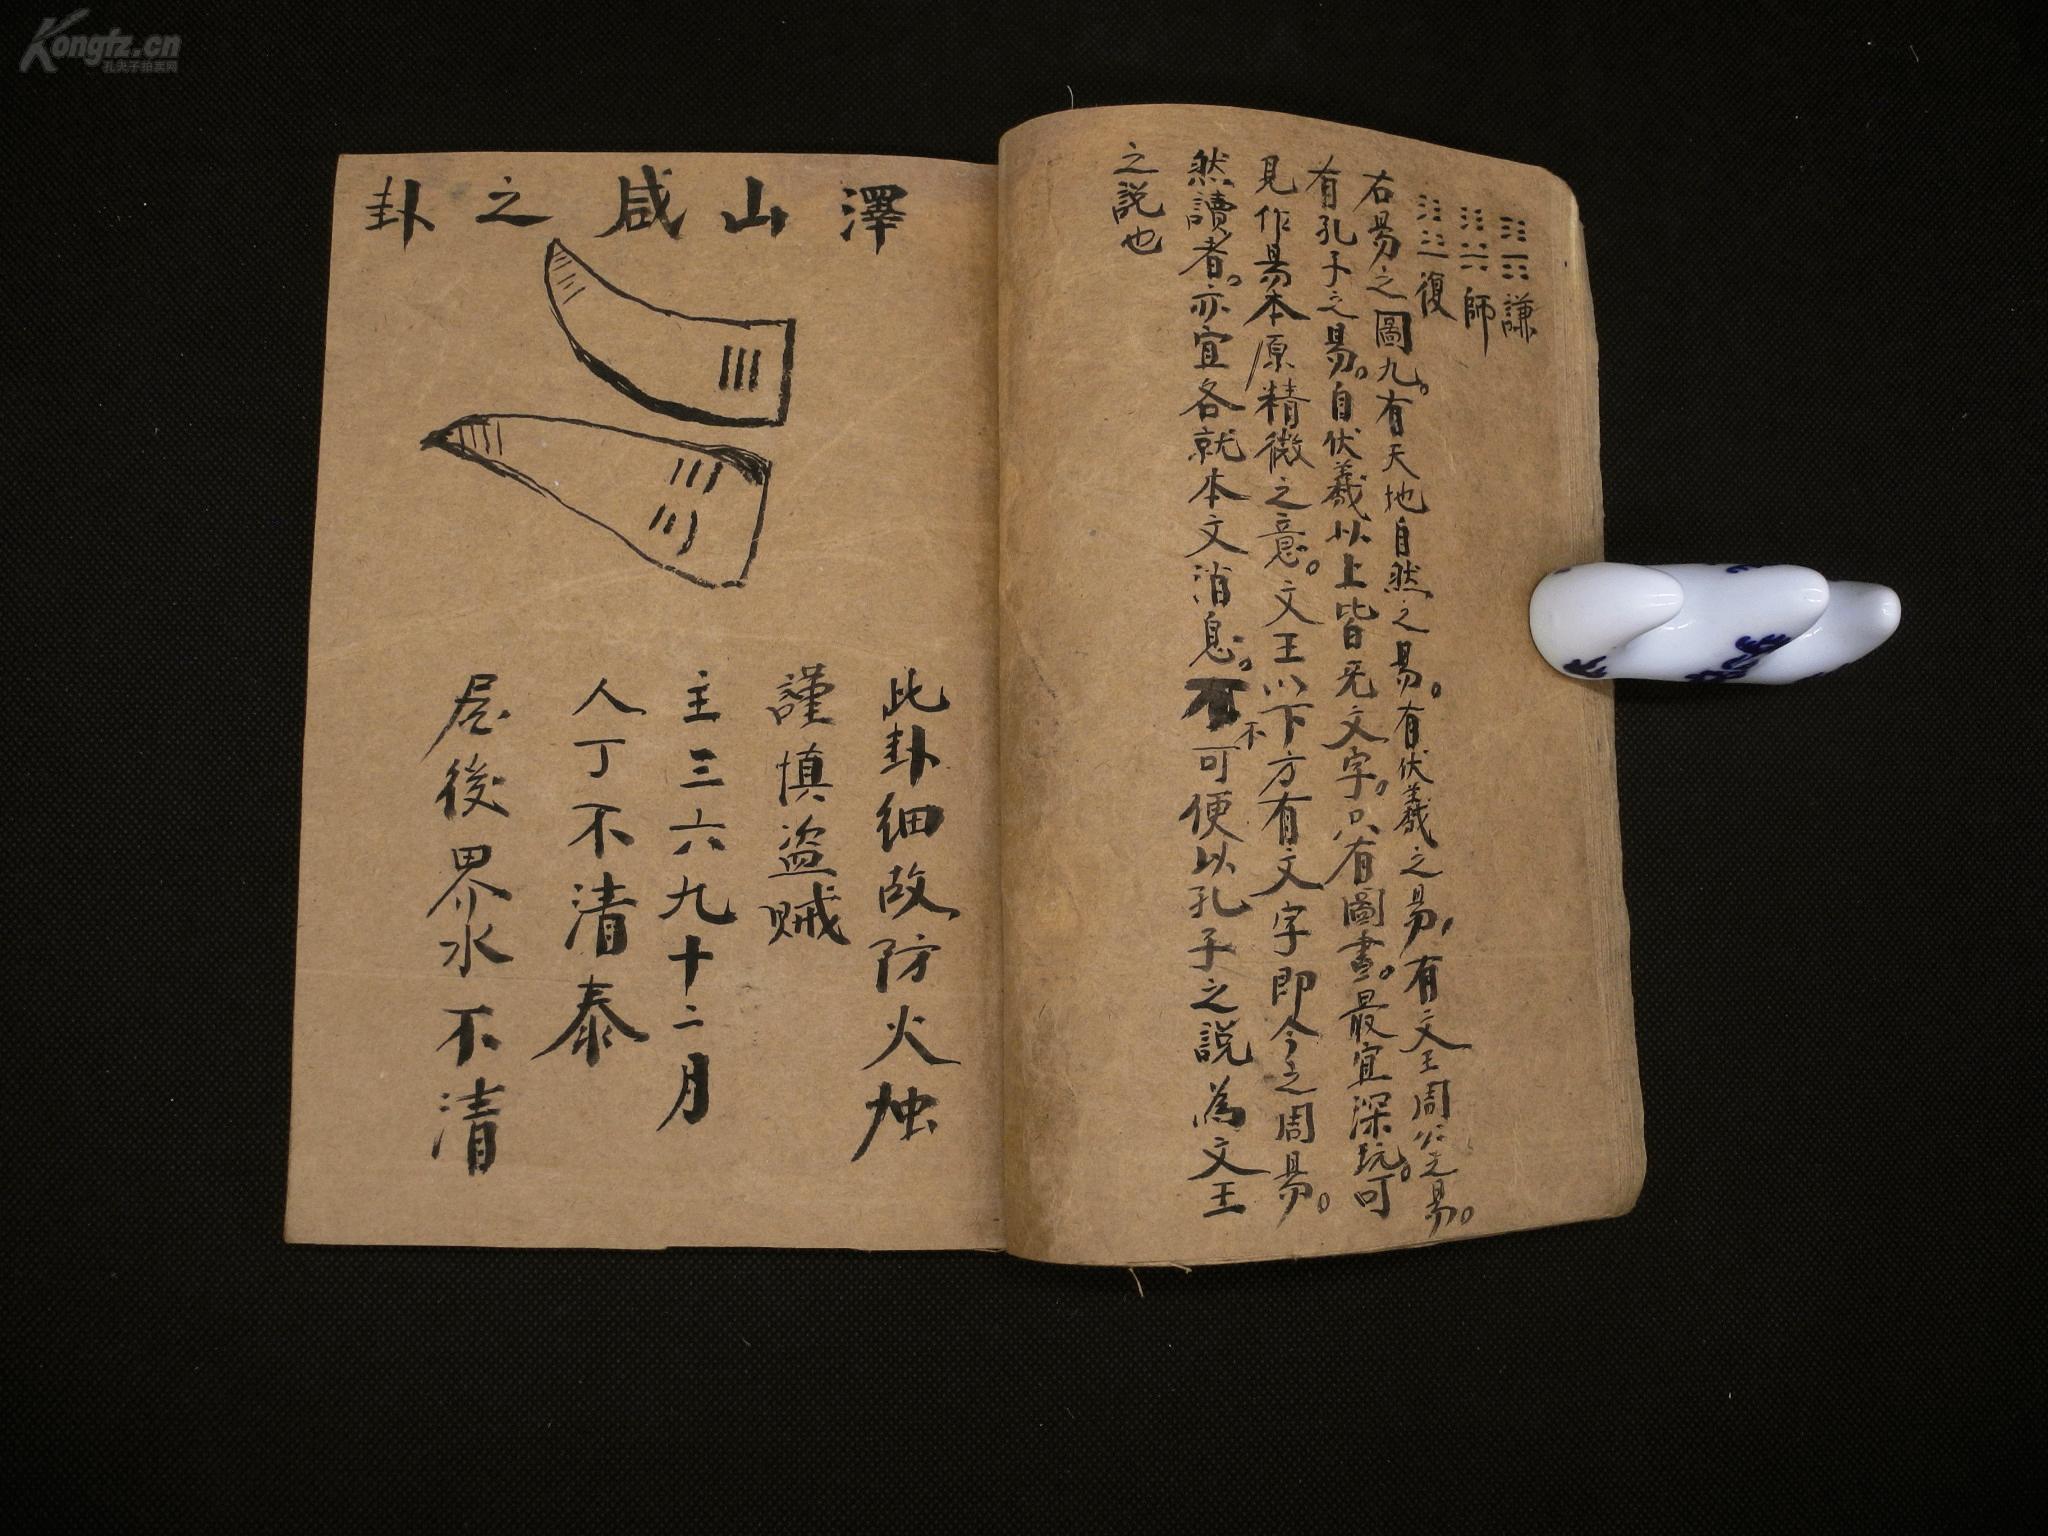 謙
師
復
右易之圖九。有天地自然之易。有伏羲之易。有文王周公之易。
有孔子之易。自伏羲以上皆无文字。只有圖畫。最宜深玩。可
見作易本原精微之意。文王以下方有文字即今之周易。
然讀者。亦宜各就本文消息。不可便以孔子之說為文王
之說也
澤山咸之卦
此卦細故防火烛
謹慎盜賊
主三六九十二月
人丁不清泰
屋後界水不清
Kongfz.cn
孔夫子拍卖网